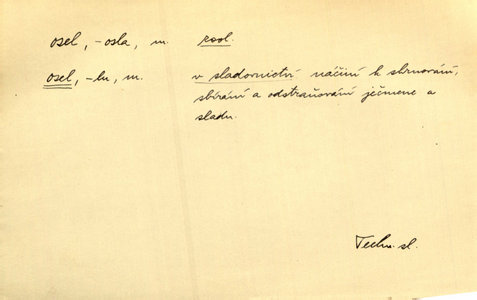 osel, -osla, m. zool.
osel, -lu, m. v sladovnictví náčiní k shrnování,
sbírání a odstraňování ječmene a
sladu.
Techn. sl.